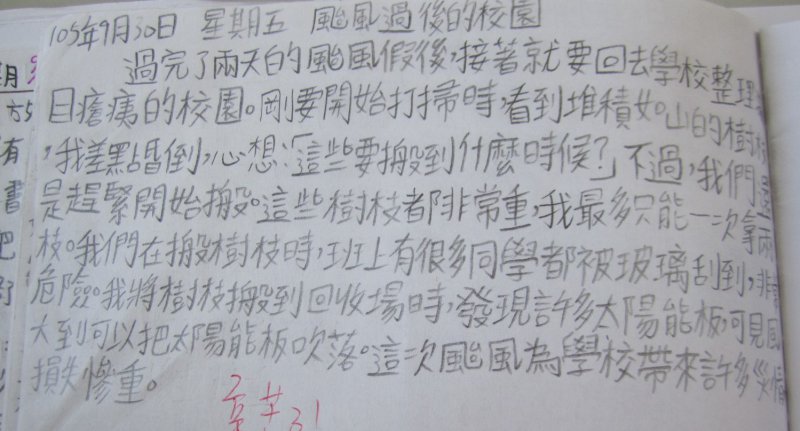 105年9月30日 星期五 颱風過後的校園
過完了兩天的颱風假後,接著就要回去學校整理
目瘡痍的校園。剛要開始打掃時,看到堆積如山的樹枝
,我差點昏倒,心想:「這些要搬到什麼時候?」不過,我們還
是趕緊開始搬。這些樹枝都非常重,我最多只能一次拿兩
枝。我們在搬樹枝時,班上有很多同學都被玻璃刮到,非常
危險。我將樹枝搬到回收場時,發現許多太陽能板,可見風
大到可以把太陽能板吹落。這次颱風為學校帶來許多災情
損失慘重。